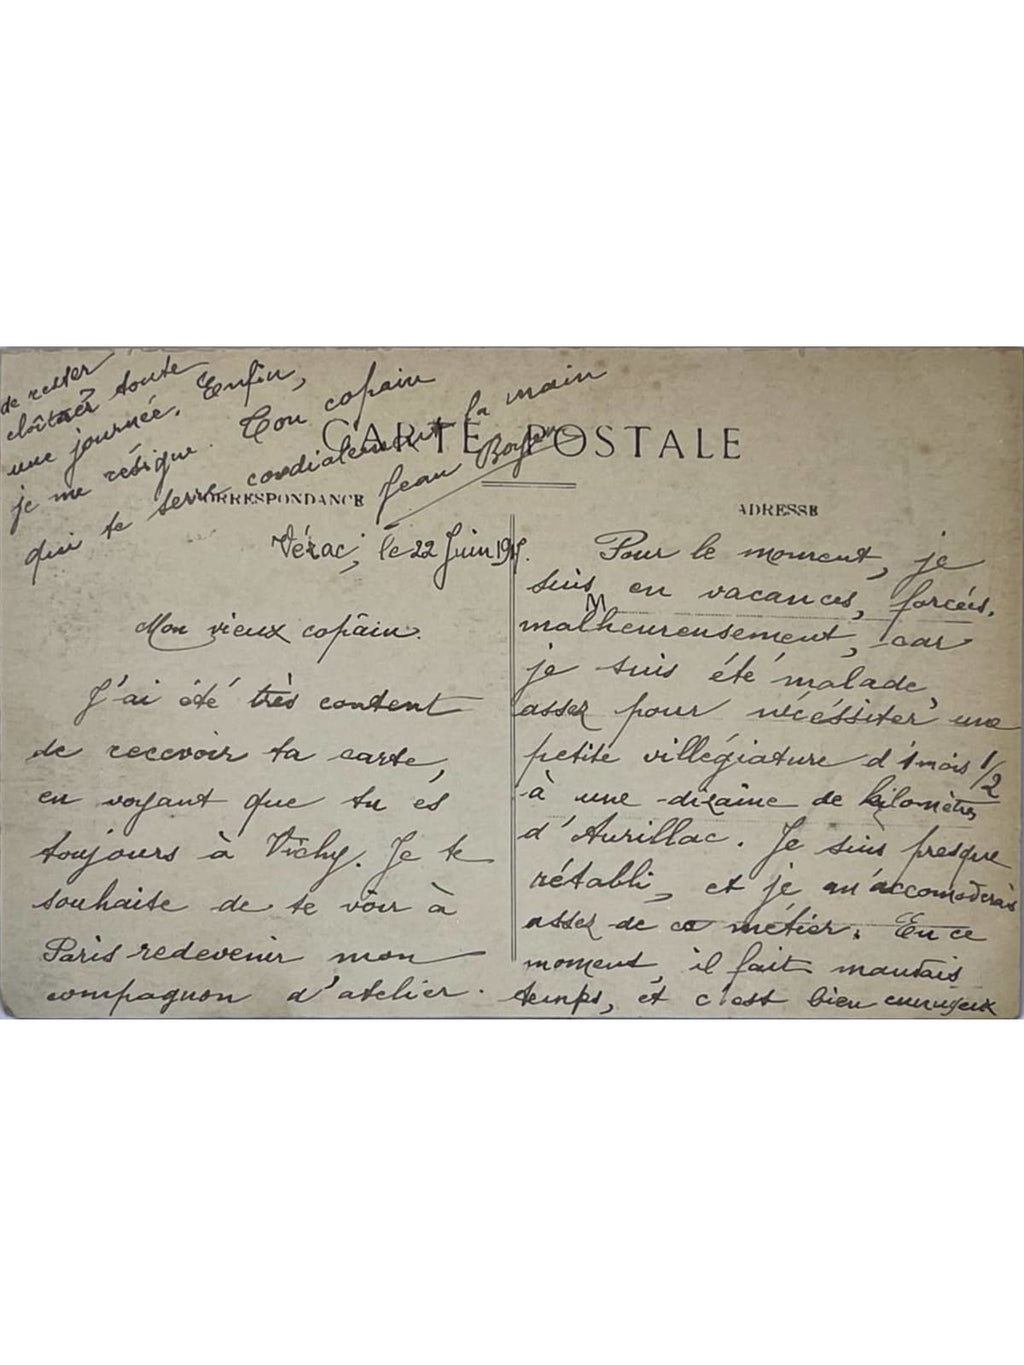 CARTE POSTALE
CORRESPONDANCE
ADRESSE
Vézac, le 22 Juin 19
Mon vieux copain.
J'ai été très content
de recevoir ta carte,
en voyant que tu es
toujours à Vichy. Je te
souhaite de te voir à
Paris redevenir mon
compagnon d'atelier.
Pour le moment, je
suis en vacances, forcées.
malheureusement, car
je suis été malade
assez pour nécéssiter une
petite villégiature d'1 mois 1/2
à une dizaine de kilomètres
d'Aurillac. Je suis presque
rétabli, et je m'accomoderais
assez de ce métier. En ce
moment, il fait mauvais
temps, et c'est bien ennuyeux
de rester
cloîtrer toute
une journée. Enfin,
je me résigne. Ton copain
qui te serre cordialement la main
Jean